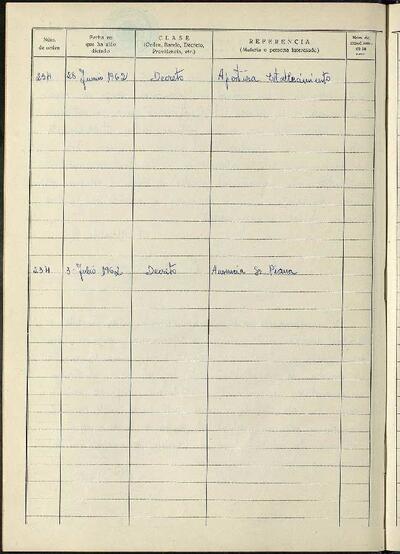 Núm. de orden
Fecha en que ha sido dictado
CLASE
(Orden, Bando, Decreto, Providencia, etc.)
REFERENCIA
(Materia o persona interesada)
234 28 Junio 1962 Decreto Apertura Establecimiento
234 3 Julio 1962 Decreto